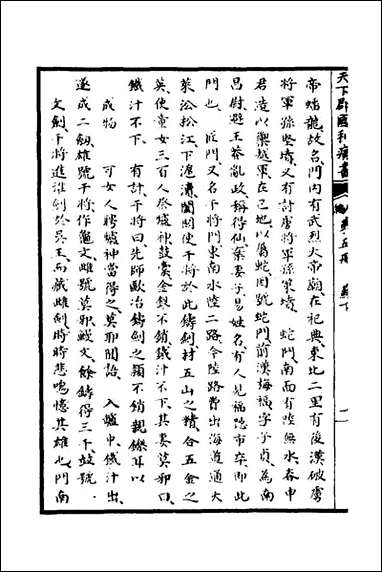 天下郡國利病書　編　第五冊　蘇下
帝蟠龍故名門内有武烈大帝廟在祀典東北二里有後漢破虜
將軍孫堅墳又有討虜將軍孫策墳　蛇門南面有陸無水春申
君造以禦越軍在巳地以屬蛇因號蛇門前漢梅福字子貞為南
昌尉避王莽亂政稱得仙棄妻子易姓名有人見福隱市卒即此
門也　匠門又名干將門東南水陸二路今陸路費出海道通大
萊沿松江下滬瀆闔閭使干將於此鑄劍材五山之精合五金之
英使童女三百人祭爐神鼓橐金銀不銷鐵汁不下其妻莫邪曰
鐵汁不下　有計干將曰先師歐冶鑄劍之穎不銷親鑠耳以
成物　可女人聘爐神當得之莫邪聞語　入爐中鐵汁出
遂成二劍雄號干將作龜文雌號莫邪鰻文餘鑄得三千並號
文劍干將進雄劍於吳王而藏雌劍時時悲鳴憶其雄也門南